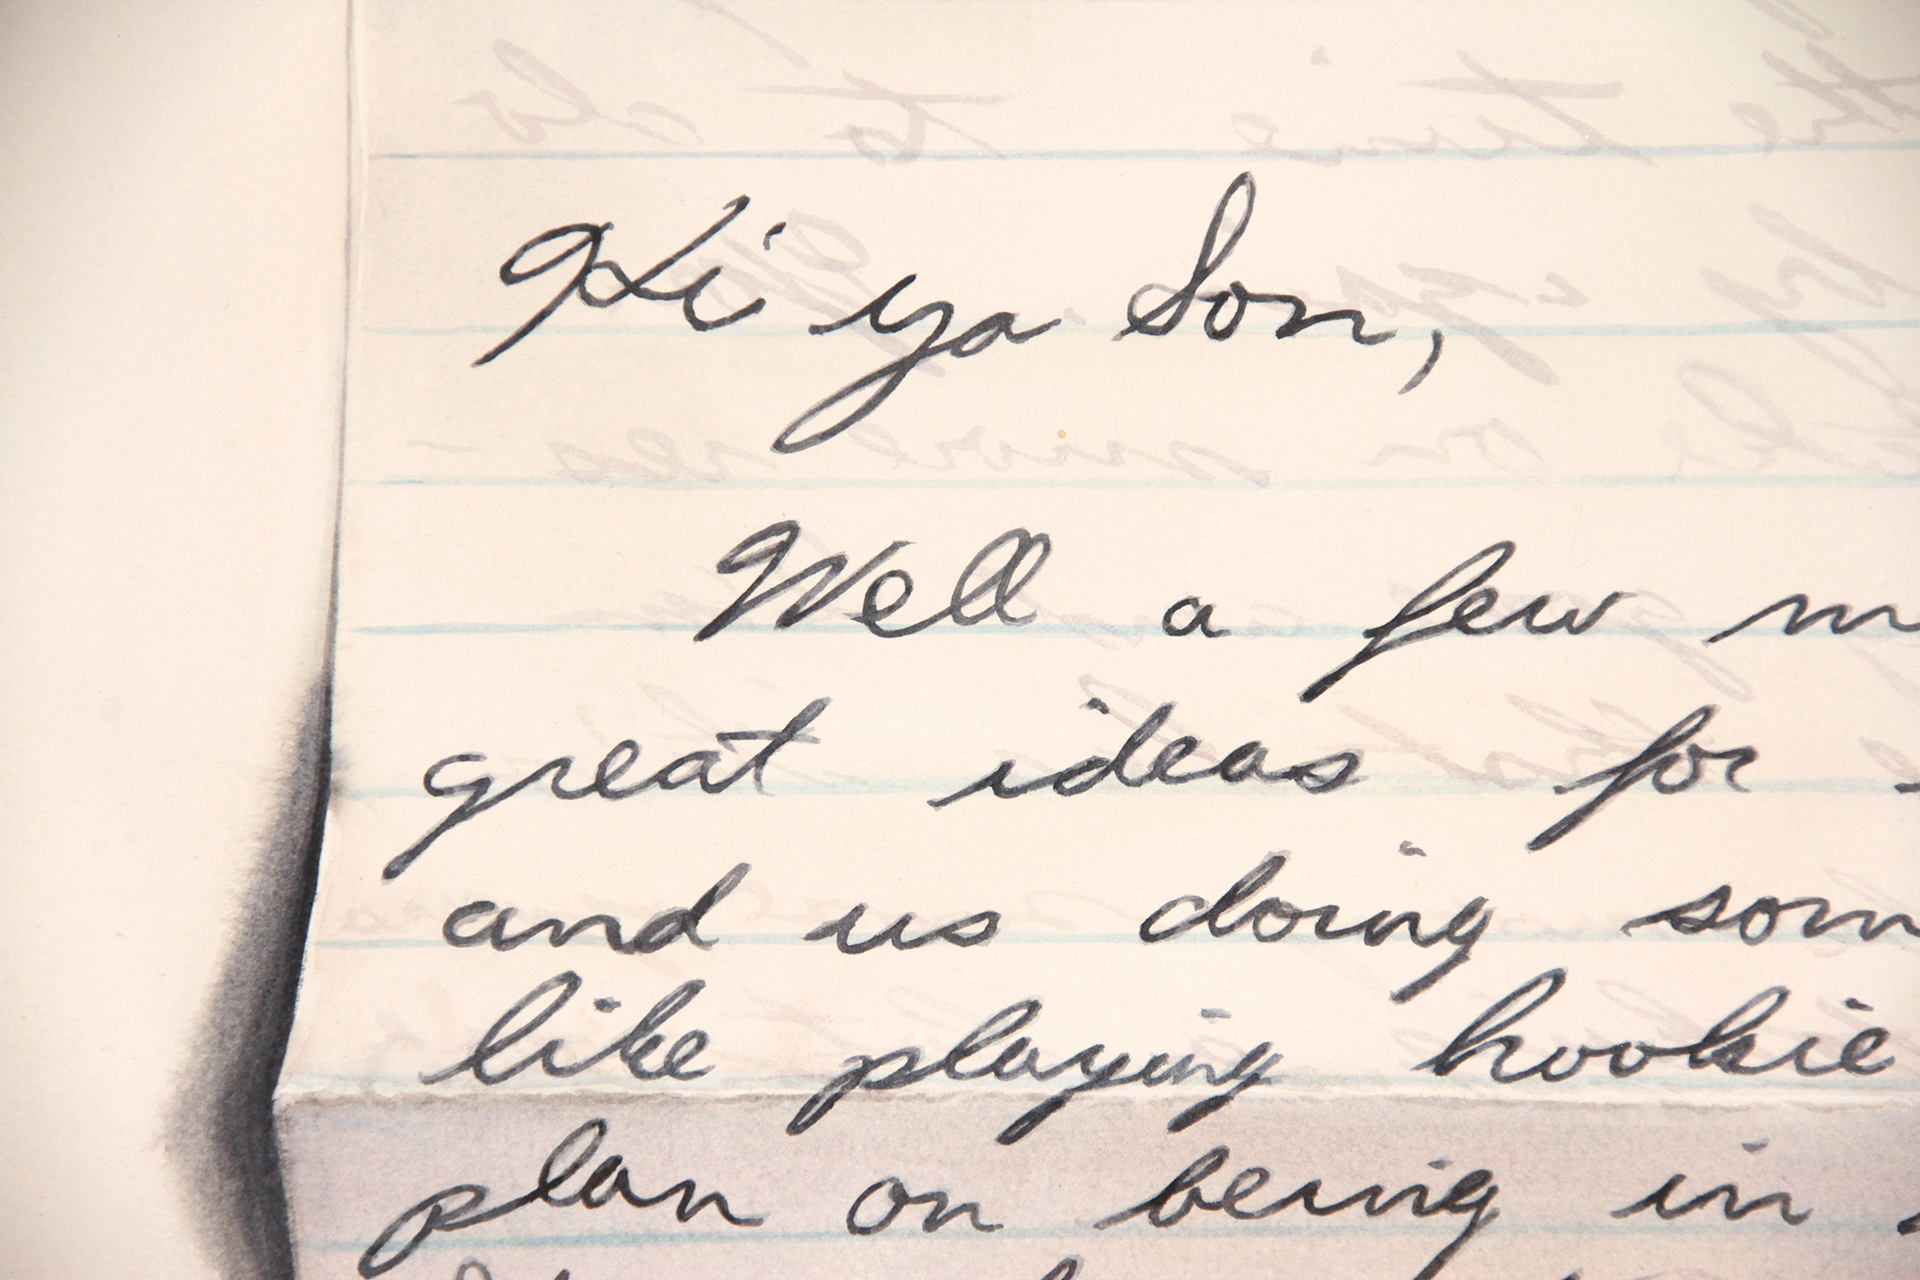 Hi ya Son,
Well a few
great ideas for
and us doing som
like playing hookie
plan on being in